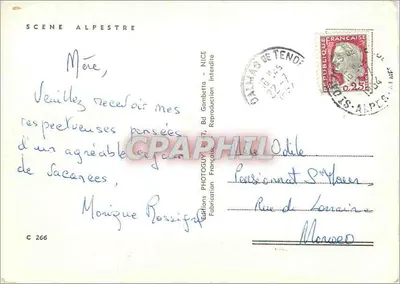 SCENE ALPESTRE
Mère,
Veuillez recevoir mes
respectueuses pensées
d'un agréable séjour
de vacances,
Monique Rossign
C 266
Editions PHOTOGUY, 7, Bd Gambetta - NICE
Fabrication Française - Reproduction Interdite
CPAPHIL
DALMAS DE TENDE
22-7
REPUBLIQUE FRANCAISE
0,25
ST DALMAS
ALPES
Odile
Pensionnat St Maur
Rue de Lorraine
Monaco